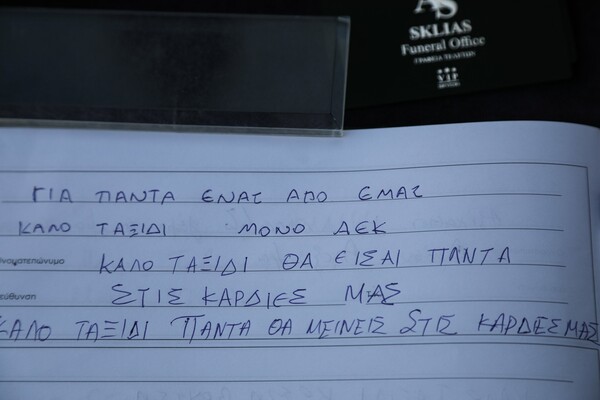 SKLIAS
Funeral Office
ΓΡΑΦΕΙΑ ΤΕΛΕΤΩΝ
VIP
ΓΙΑ ΠΑΝΤΑ ΕΝΑΣ ΑΠΟ ΕΜΑΣ
ΚΑΛΟ ΤΑΞΙΔΙ ΜΟΝΟ ΑΕΚ
ΚΑΛΟ ΤΑΞΙΔΙ ΘΑ ΕΙΣΑΙ ΠΑΝΤΑ
ΣΤΙΣ ΚΑΡΔΙΕΣ ΜΑΣ
ΚΑΛΟ ΤΑΞΙΔΙ ΠΑΝΤΑ ΘΑ ΜΕΙΝΕΙΣ ΣΤΙΣ ΚΑΡΔΙΕΣ ΜΑΣ